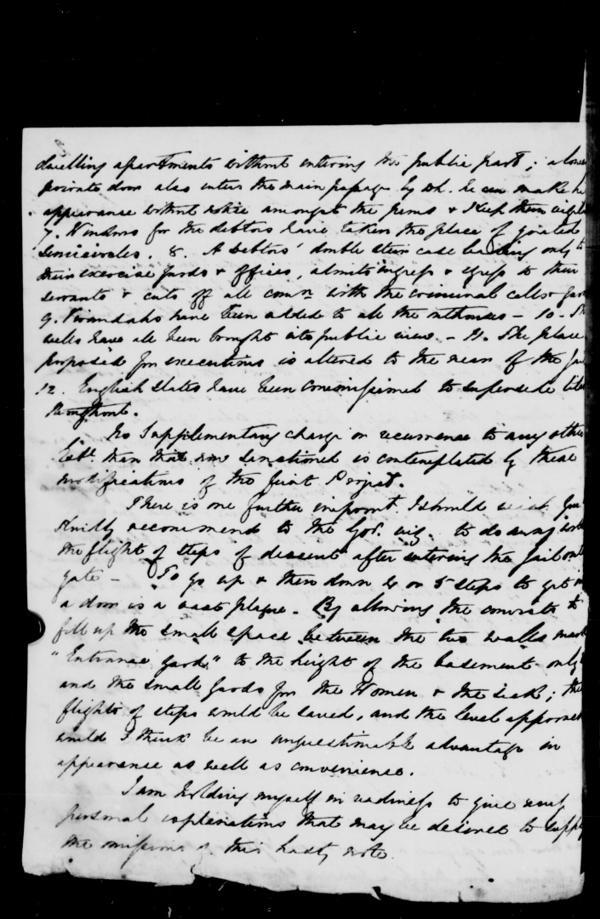 dwelling apartments without entering the public part; a
private door also enters the main passage by wh. he can make h
appearance without notice amongst the & keep them
7. Windows for the debtors have taken the place of grated
Semicircles. 8. A Debtors' double stair case leading only to
their exercise yards & offices, admits ingress & egress to their
servants & cuts off all comn. with the criminal cells &
9. Verandahs have been added to all the - 10. The
wells have all been brought into public view. - 11. The place
proposed for executions is altered to the rear of the Ja
12. English slates have been commissioned to supersede tile
throughout.
No Supplementary charge or recurrence to any other
than that now sanctioned is contemplated by these
modifications of the first Project.
There is one further improvt. I should wish you
kindly recommend to the Govr. viz. to do away with
the flight of steps of descent after entering the Jail
gate - To go up & then down 4 or 5 steps to get
a door is a vast plague. By allowing the convicts to
fill up the small space between the two walls
"Entrance yard" to the height of the basement only
and the small yards for the Women & the sick; the
flights of steps would be saved, and the level approach
would I think be an unquestionable advantage in
appearance as well as convenience.
I am holding myself in readiness to give any
personal explanations that may be desired to supply
the omissions of this hasty note.